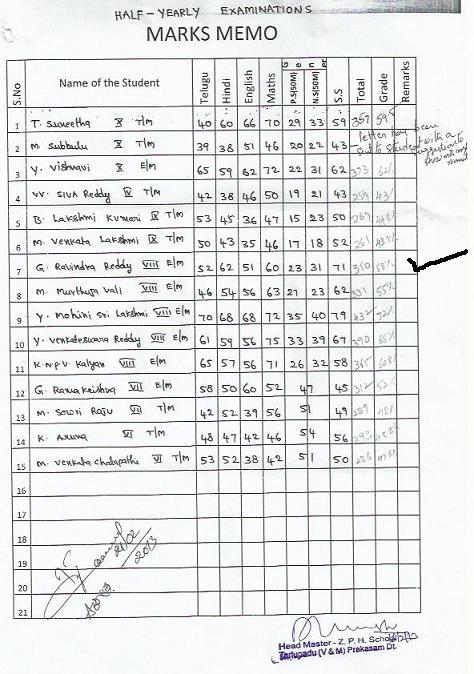 HALF-YEARLY EXAMINATIONS
MARKS MEMO
S.No Name of the Student Telugu Hindi English Maths Gener P.S(50M) N.S(50M) S.S Total Grade Remarks
1 T. Suneetha X T/M 40 60 66 70 29 33 59 357
2 M Subbulu X T/M 39 38 51 46 20 22 43
letter has been
sent to student with a
3 Y. Vishnavi X E/M 65 59 62 72 22 31 62 373
4 VV. SIVA Reddy IX T/M 42 38 46 50 19 21 43 259 43%
5 B. Lakshmi Kumari IX T/M 53 45 36 47 15 23 50 269
6 M. Venkata Lakshmi IX T/M 50 43 35 46 17 18 52 261
7 G. Ravindra Reddy VIII E/M 52 62 51 60 23 31 71 350 58%
8 M. Murthuja Vali VIII E/M 46 54 56 63 27 23 62 331 55%
9 Y. Mohini Sri Lakshmi VIII E/M 70 68 68 72 35 40 79 432 72%
10 Y. Venkateswara Reddy VIII E/M 61 59 56 75 33 39 67 390 65%
11 K.N.P.V. Kalyan VIII E/M 65 57 56 71 26 32 58 365
12 G. Rama Krishna VII E/M 58 50 60 52 47 45 312 52%
13 M. Sowri Raju VII T/M 42 52 39 56 51 49 289 48%
14 K. Aruna VI T/M 48 47 42 46 54 56 293
15 M. Venkata Chalapathi VI T/M 53 52 38 42 51 50 286
16
17
18
19
20
21
21/02
2013
Head Master - Z. P. H. School
Tarlupadu (V & M) Prakasam Dt.